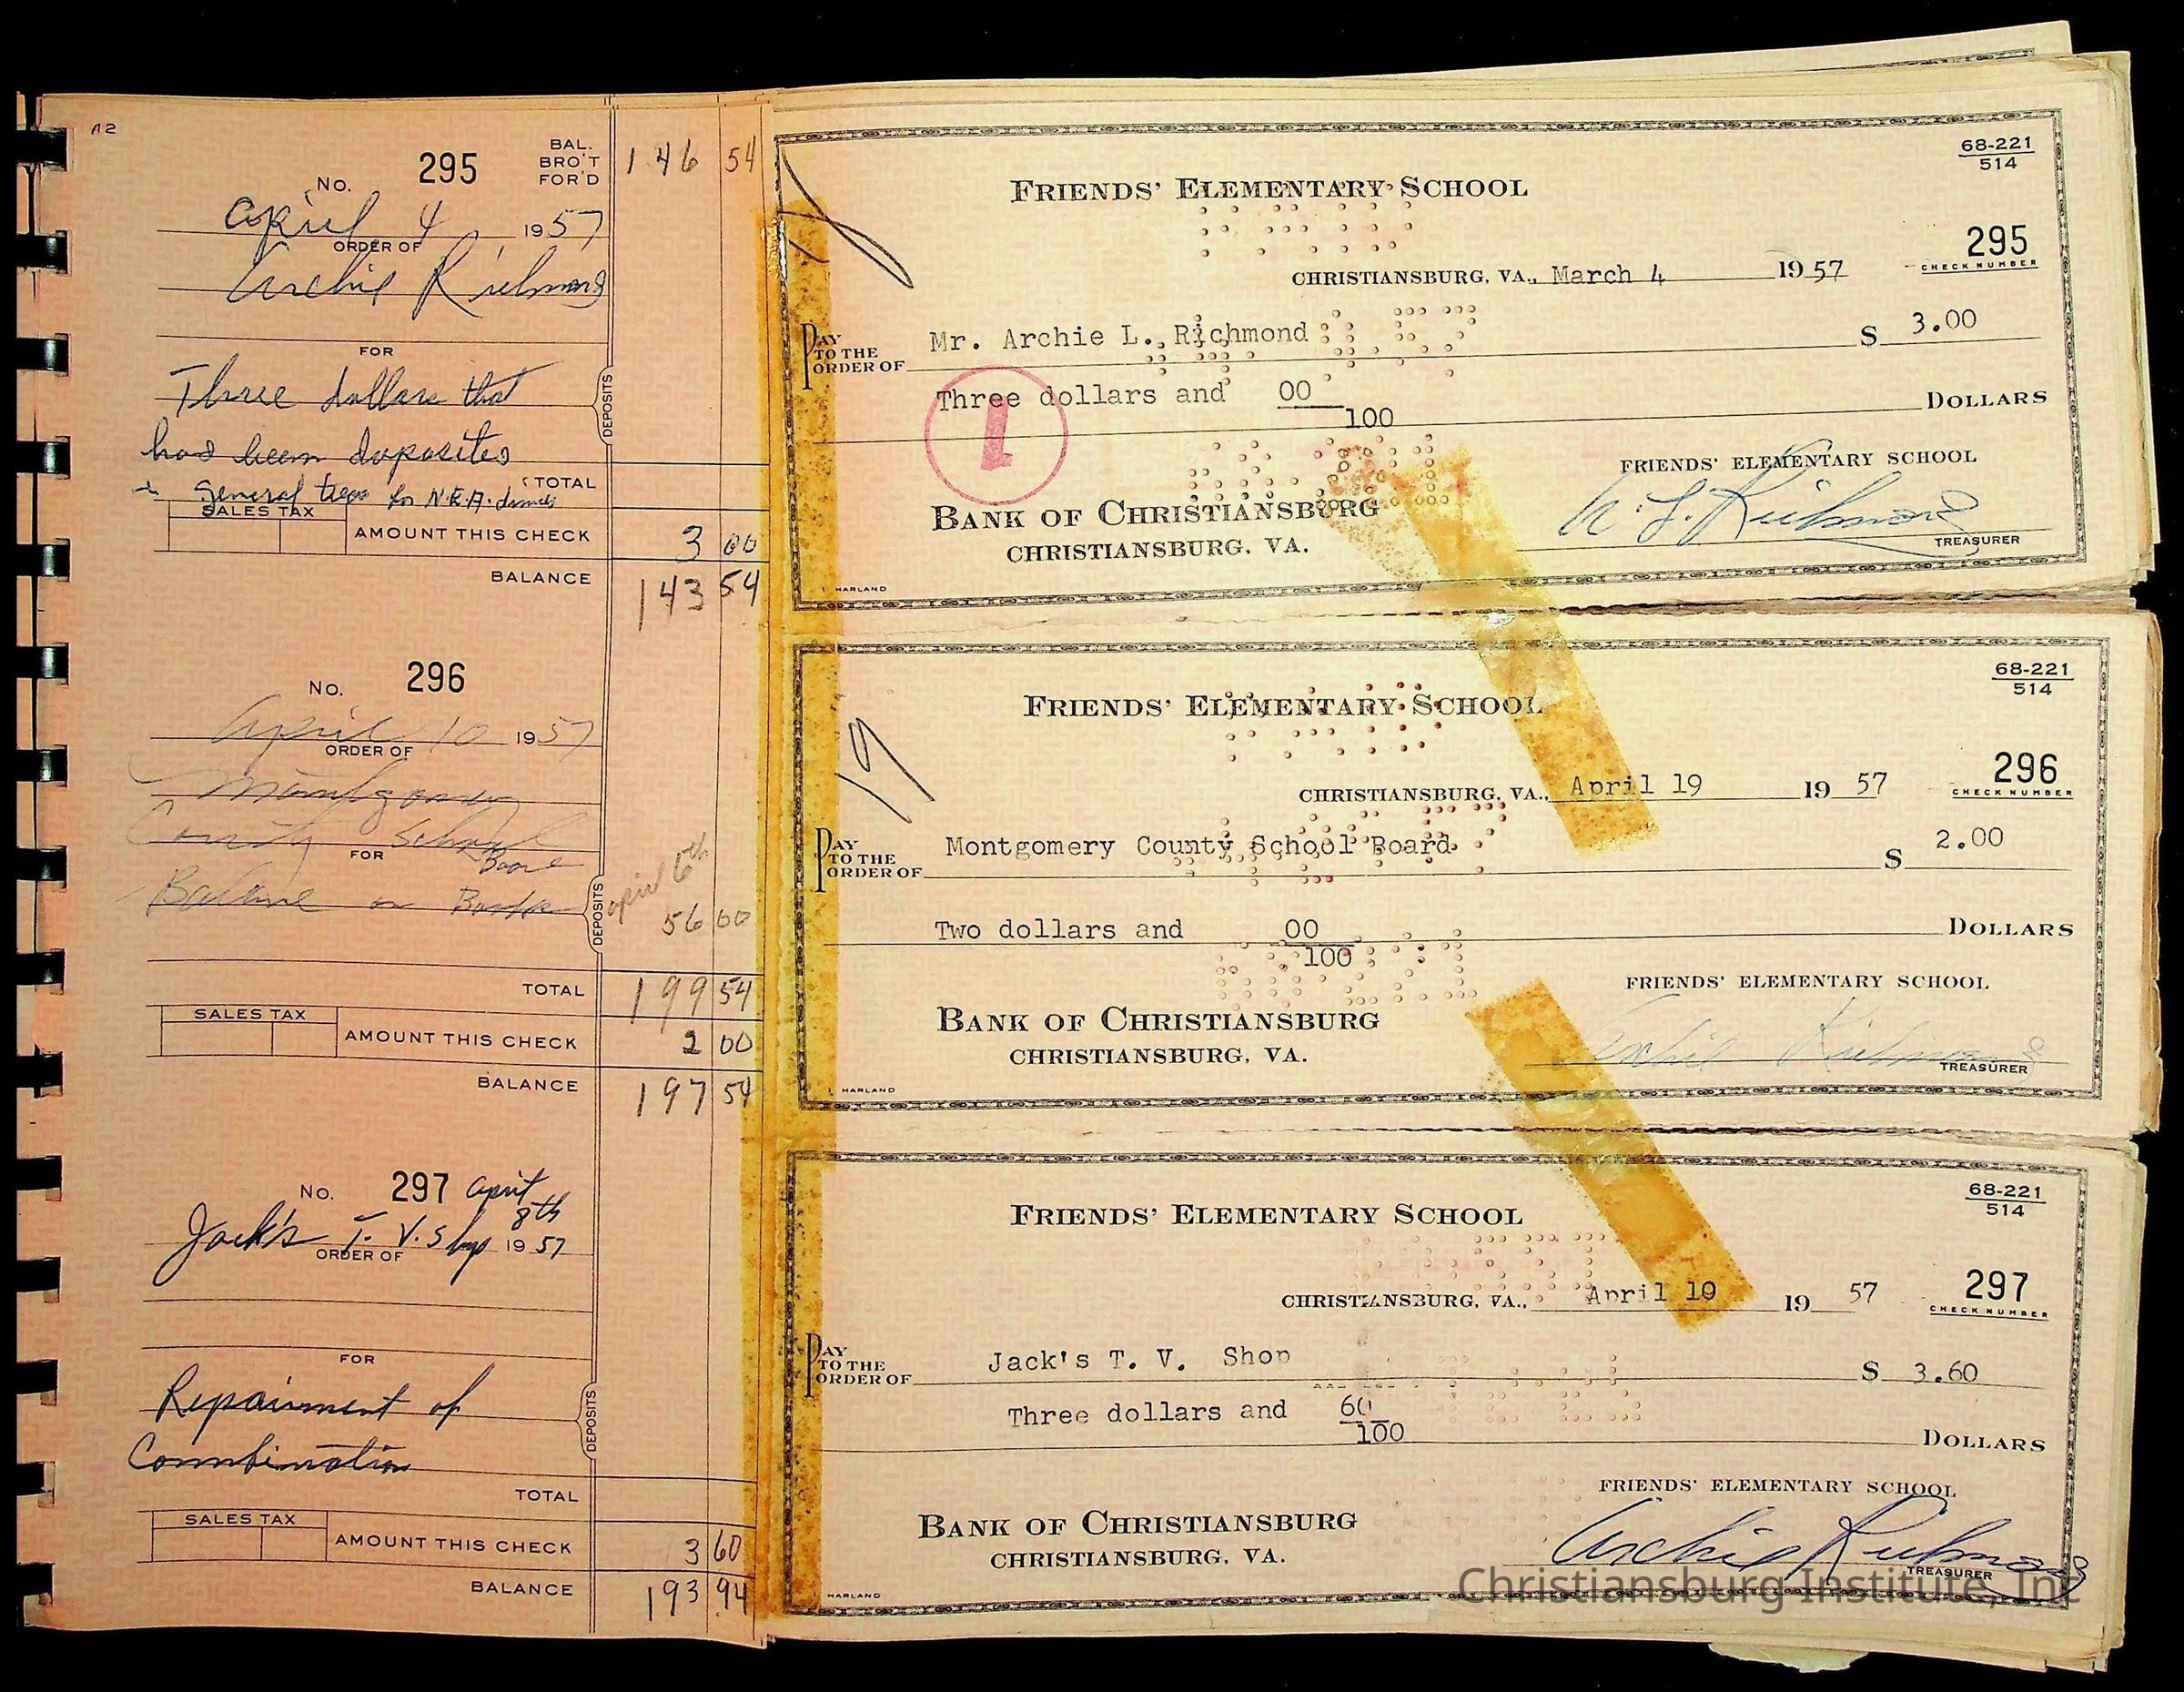 A2
No. 295
BAL. BRO'T FOR'D 146 54
April 4 1957
ORDER OF
Archie Richmond
FOR
Three dollars that
had been deposited
General treas for N.E.A. dinner
TOTAL
DEPOSITS
SALES TAX
AMOUNT THIS CHECK 3 00
BALANCE 143 54
No. 296
April 10 1957
ORDER OF
Montgomery
County School
FOR
Board
Balance on Books
DEPOSITS
April 6th
56 00
TOTAL 199 54
SALES TAX
AMOUNT THIS CHECK 2 00
BALANCE 197 54
No. 297 April
8th
Jack's T. V. Shop 1957
ORDER OF
FOR
Repairment of
Commbination
DEPOSITS
TOTAL
SALES TAX
AMOUNT THIS CHECK 3 60
BALANCE 193 94
68-221
514
FRIENDS' ELEMENTARY SCHOOL
295
CHECK NUMBER
CHRISTIANSBURG, VA., March 4 1957
PAY TO THE ORDER OF Mr. Archie L. Richmond $ 3.00
Three dollars and 00/100 DOLLARS
1
FRIENDS' ELEMENTARY SCHOOL
BANK OF CHRISTIANSBURG
A. L. Richmond
CHRISTIANSBURG, VA.
TREASURER
HARLAND
68-221
514
FRIENDS' ELEMENTARY SCHOOL
19
296
CHECK NUMBER
CHRISTIANSBURG, VA., April 19 1957
PAY TO THE ORDER OF Montgomery County School Board $ 2.00
Two dollars and 00/100 DOLLARS
FRIENDS' ELEMENTARY SCHOOL
BANK OF CHRISTIANSBURG
Archie Richmond
CHRISTIANSBURG, VA.
TREASURER
HARLAND
68-221
514
FRIENDS' ELEMENTARY SCHOOL
297
CHECK NUMBER
CHRISTIANSBURG, VA., April 10 1957
PAY TO THE ORDER OF Jack's T. V. Shop $ 3.60
Three dollars and 60/100 DOLLARS
FRIENDS' ELEMENTARY SCHOOL
BANK OF CHRISTIANSBURG
Archie Richmond
CHRISTIANSBURG, VA.
TREASURER
HARLAND
Christiansburg Institute, Inc